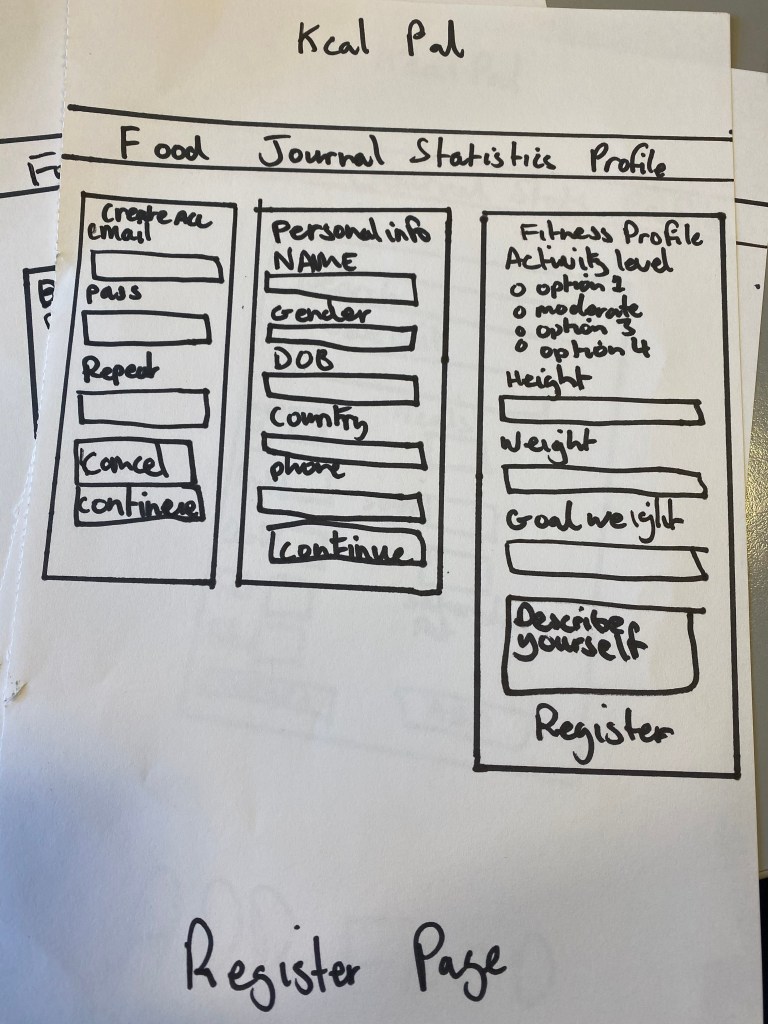 Kcal Pal
Food Journal Statistics Profile
Create Acc
email
pass
Repeat
Cancel
continue
Personal info
NAME
Gender
DOB
Country
phone
Continue
Fitness Profile
Activity level
option 1
moderate
option 3
option 4
Height
Weight
Goal weight
Describe
yourself
Register
Register Page